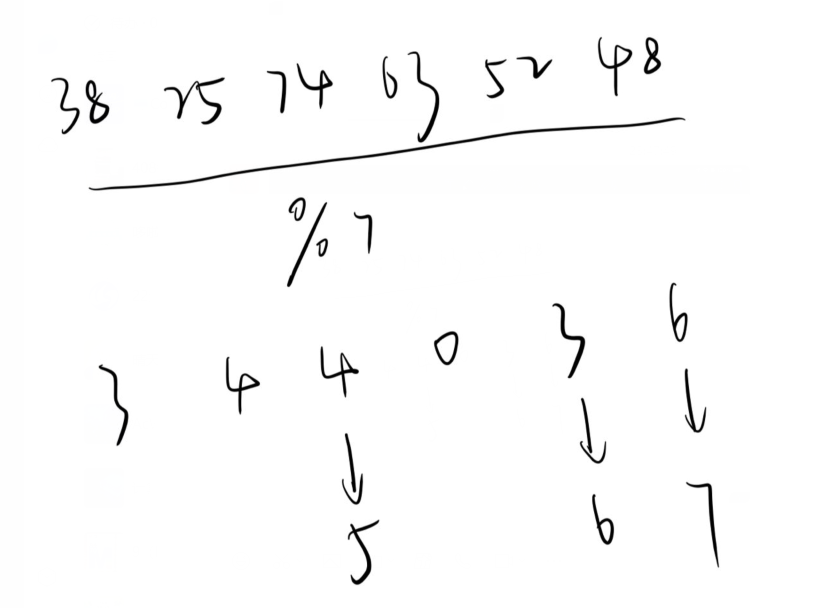 38 25 74 63 52 48
% 7
3 4 4 0 3 6
↓ ↓ ↓
5 6 7